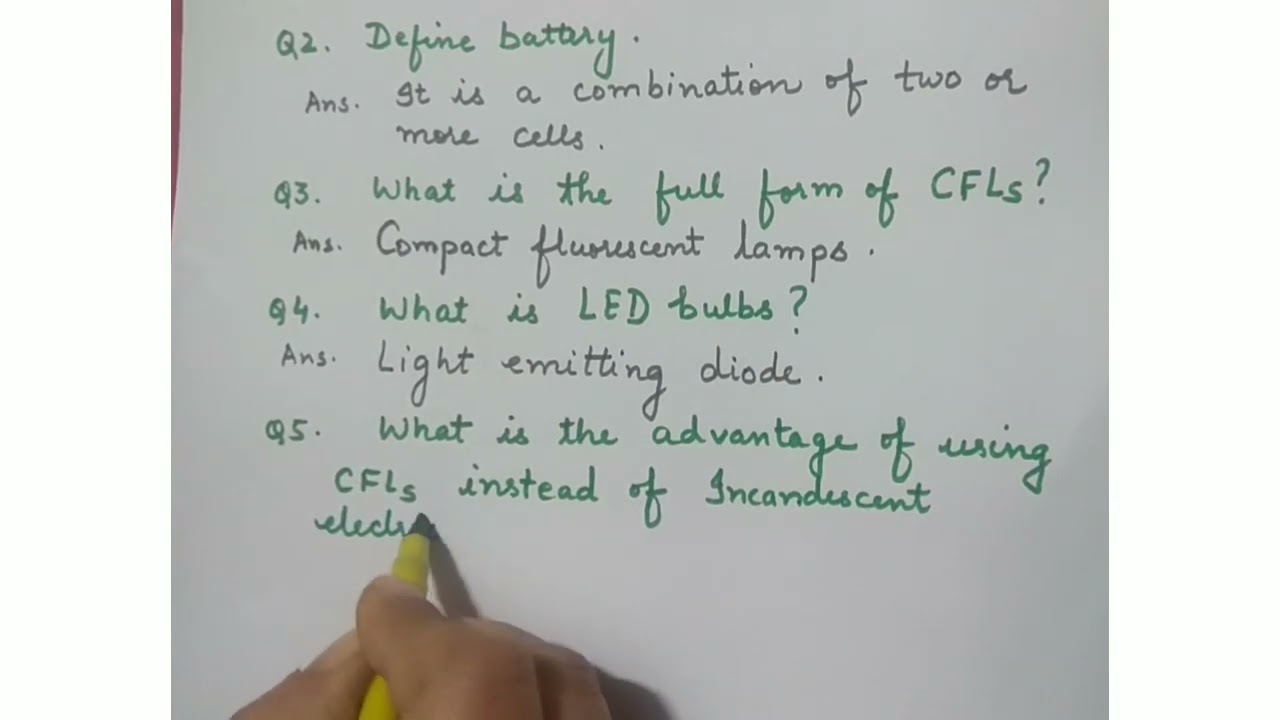 Q2. Define battery.
Ans. It is a combination of two or
more cells.
Q3. What is the full form of CFLs?
Ans. Compact fluorescent lamps.
Q4. What is LED bulbs?
Ans. Light emitting diode.
Q5. What is the advantage of using
CFLs instead of Incandescent